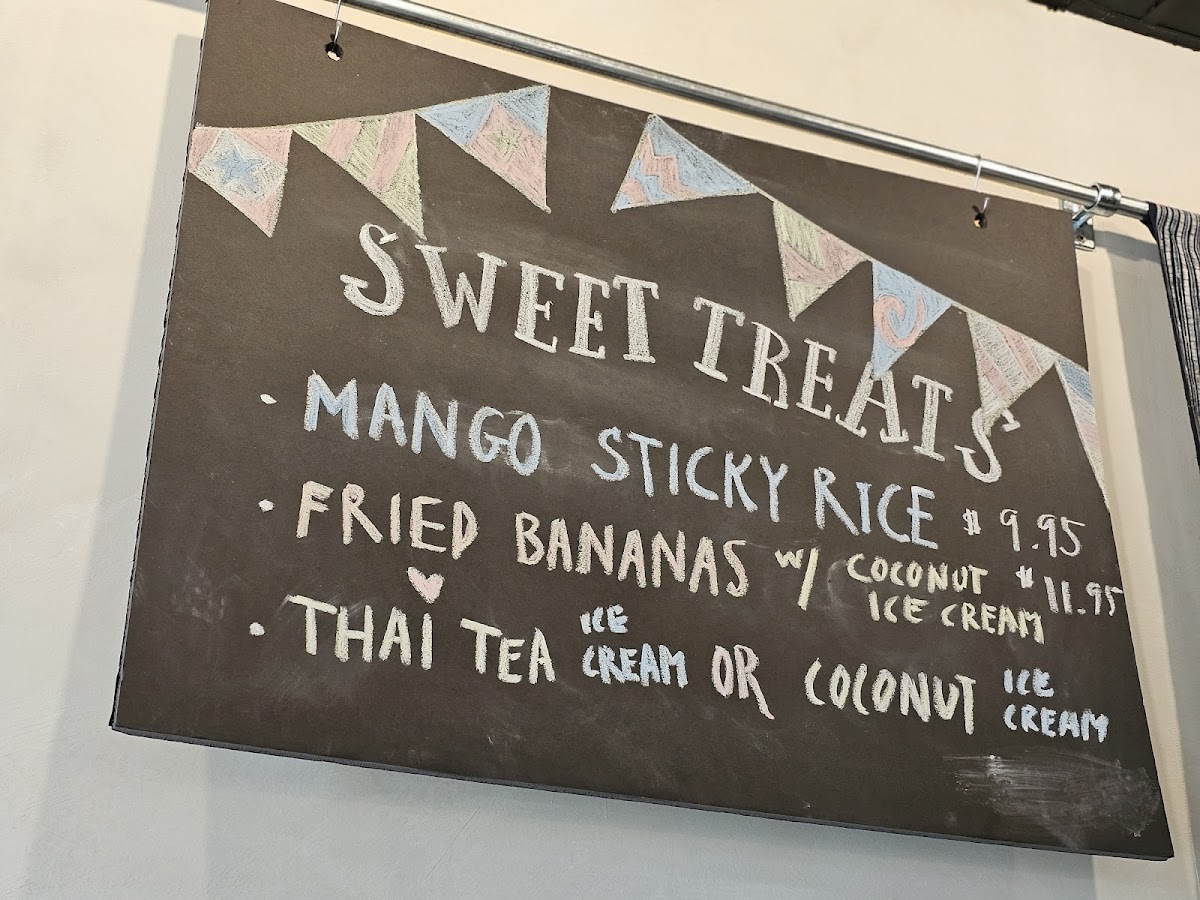 SWEET TREATS
• MANGO STICKY RICE $9.95
• FRIED BANANAS w/ COCONUT ICE CREAM $11.95
• THAI TEA ICE CREAM OR COCONUT ICE CREAM